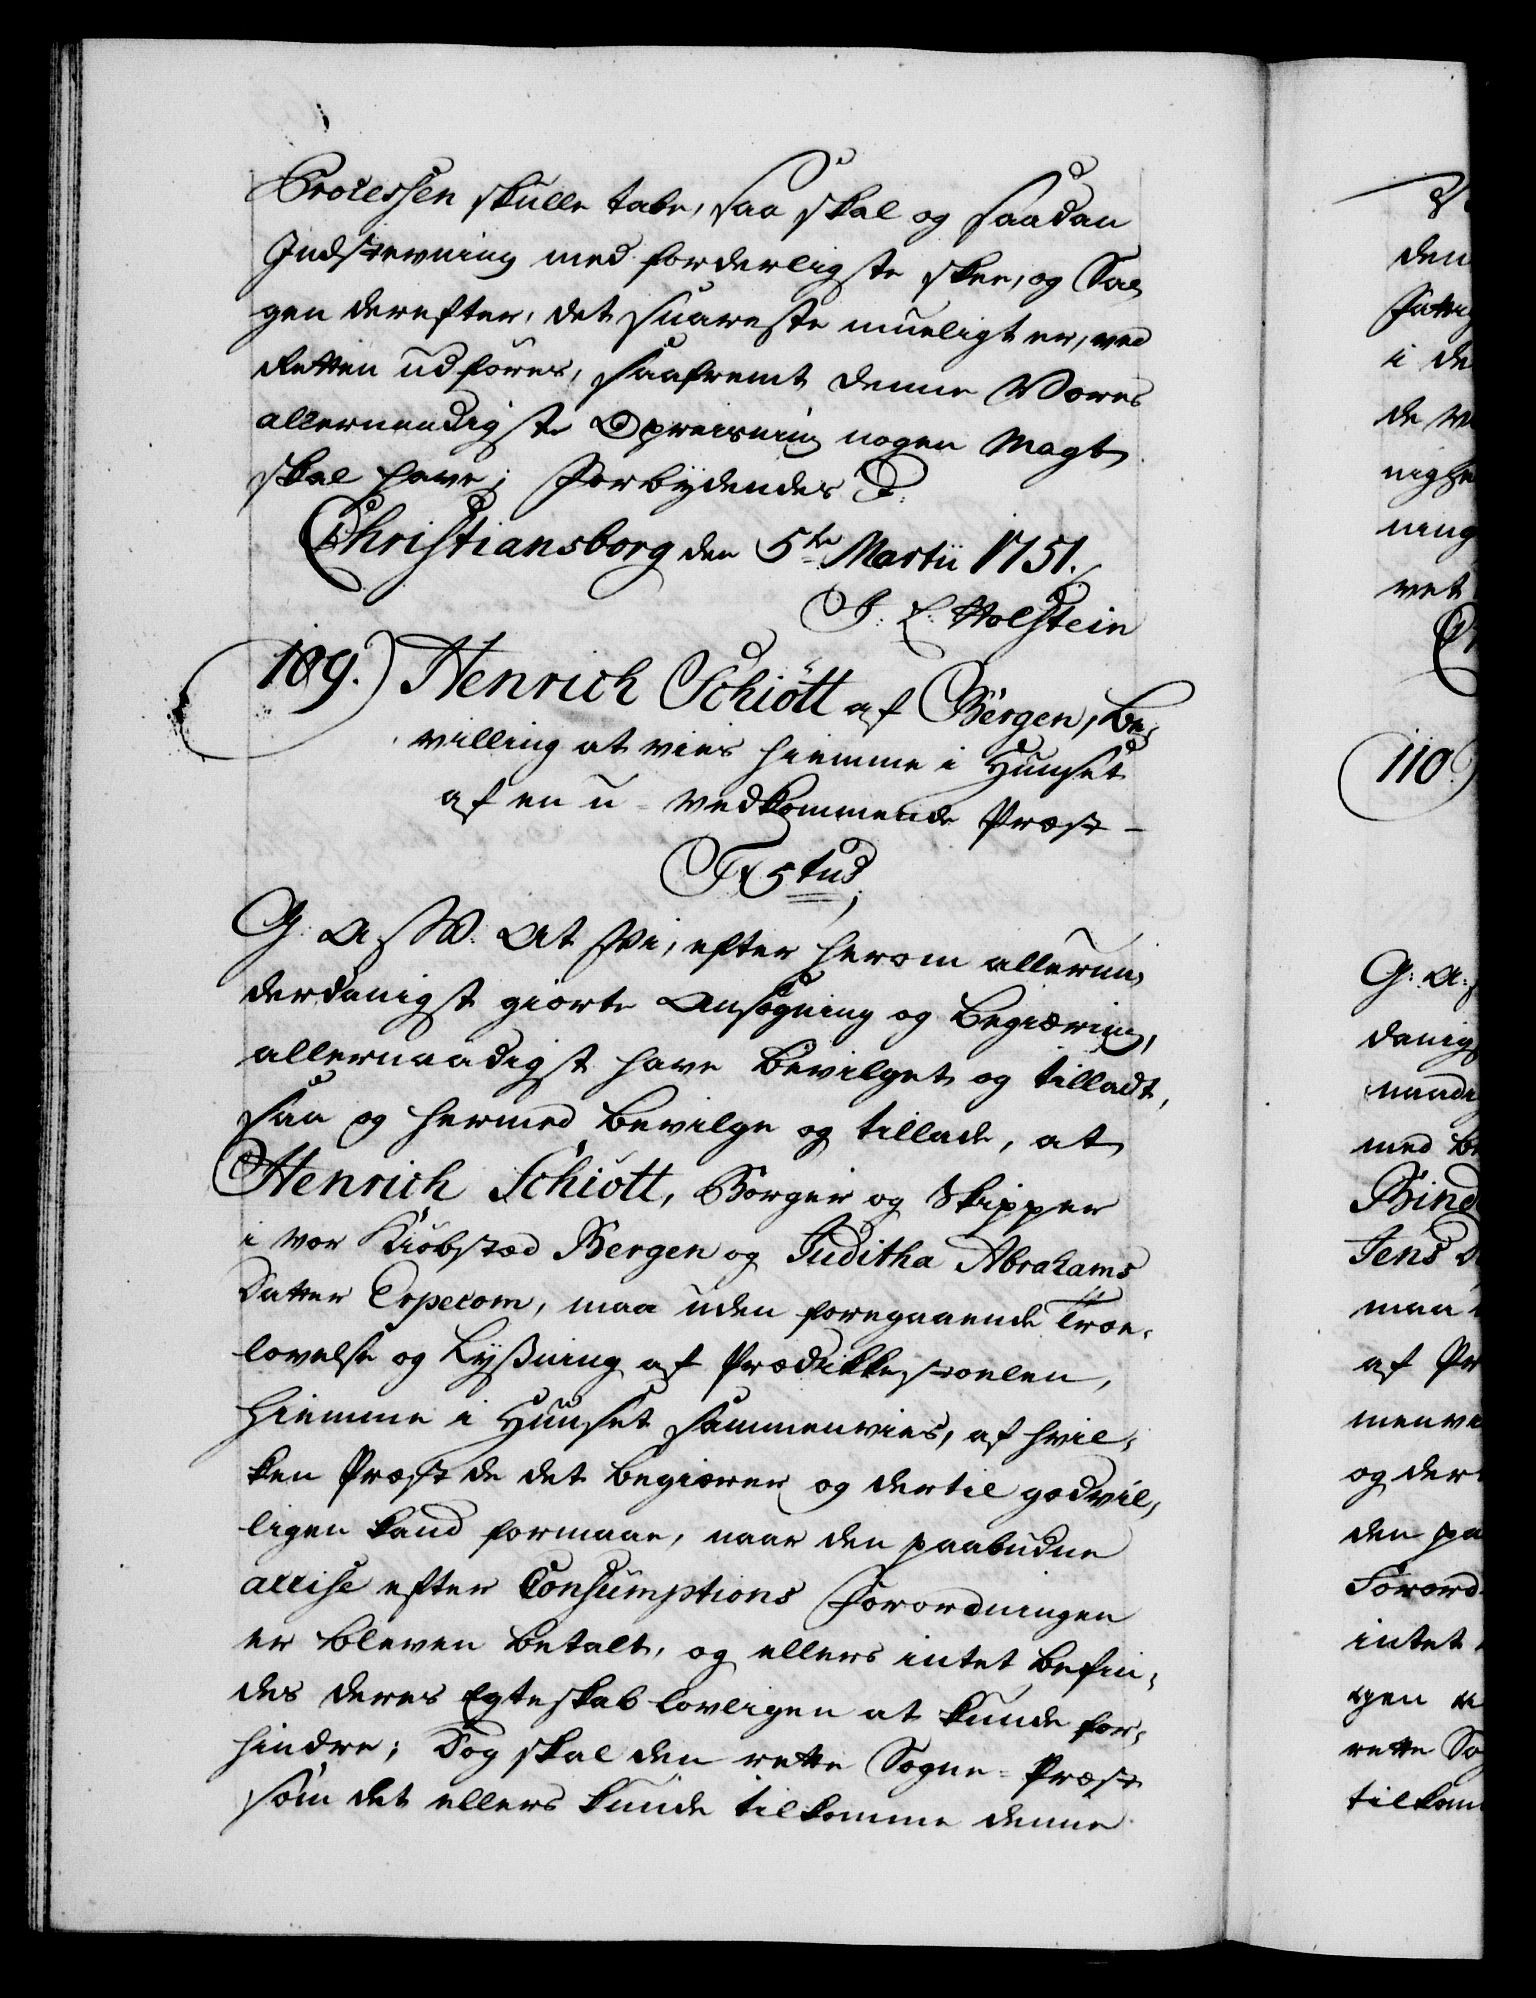 Processen skulle tabe, saa skal og saadan
Indstevning med forderligste skee, og Sa-
gen derefter, det snareste mueligt er, ved
Retten udføres, saafremt denne Vores
allernaadigste Opreisning nogen Magt
skal have; Forbydendes &.
Christiansborg den 5te Martii 1751.
J. L. Holstein
109.) Henrich Schiött af Bergen, Be-
villing at vies hiemme i Huuset
af en u-vedkommende Præst -
G: A: W: At Vi, efter herom allerun-
derdanigst giorte Ansøgning og Begiæring,
allernaadigst have bevilget og tilladt,
saa og hermed bevilge og tillade, at
Henrich Schiött, Borger og Skipper
i vor Kiøbstæd Bergen og Juditha Abrahams
Datter Erpecom, maa uden foregaaende Troe-
lovelse og Lyßning af Prædikkestoelen,
hiemme i Huuset sammenvies, af hvil-
ken Præst de det begiærer og dertil godvil-
ligen kand formaae, naar den paabudne
accise efter Consumptions Forordningen
er bleven betalt, og ellers intet befin-
des deres Egteskab lovligen at kunde for-
hindre; Dog skal den rette Sogne-Præst
som det ellers kunde tilkomme denne
den
i de
ning
vet
110.)
G: A:
danig
naadi
med be
Bind
Jens
maa
af Pr
menvi
og der
den pa
Forord
intet
gen
rette So
tilkom